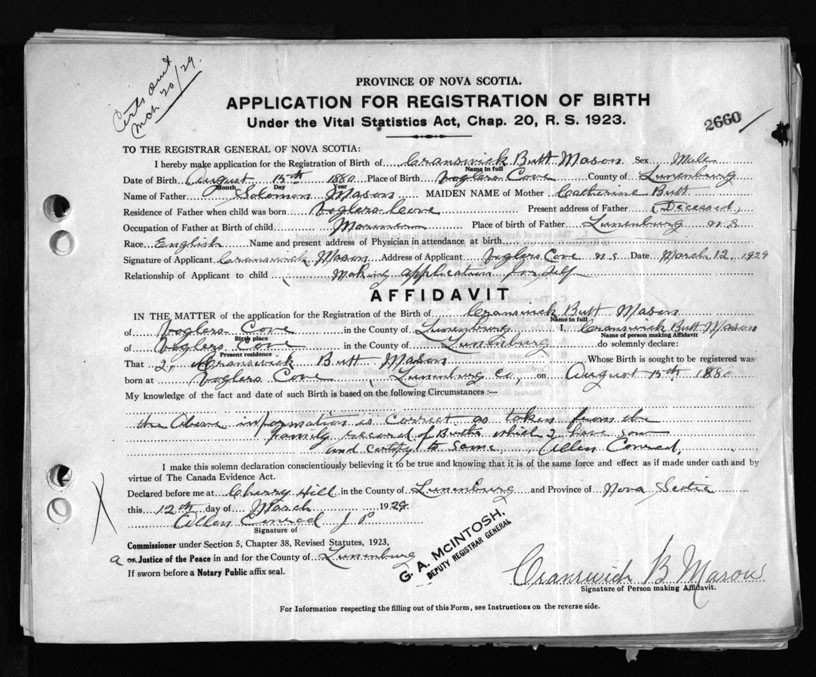 Certs out
Mch 20/29.
PROVINCE OF NOVA SCOTIA.
APPLICATION FOR REGISTRATION OF BIRTH
Under the Vital Statistics Act, Chap. 20, R. S. 1923.
2660
TO THE REGISTRAR GENERAL OF NOVA SCOTIA:
I hereby make application for the Registration of Birth of Cranswick Butt Mason Sex Male
Name in full
Date of Birth August 15th 1880 Place of Birth Voglers Cove County of Lunenburg
Month Day Year
Name of Father Solomon Mason MAIDEN NAME of Mother Catherine Butt
Residence of Father when child was born Voglers Cove Present address of Father (Deceased)
Occupation of Father at Birth of child Mariner Place of birth of Father Lunenburg N S
Race English Name and present address of Physician in attendance at birth
Signature of Applicant Cranswick Mason Address of Applicant Voglers Cove N.S. Date March 12, 1929
Relationship of Applicant to child Making application for self
AFFIDAVIT
IN THE MATTER of the application for the Registration of the Birth of Cranswick Butt Mason
Name in full
of Voglers Cove in the County of Lunenburg I, Cranswick Butt Mason
Birth place Name of person making Affidavit
of Voglers Cove in the County of Lunenburg do solemnly declare:
Present residence
That I, Cranswick Butt Mason Whose Birth is sought to be registered was
born at Voglers Cove, Lunenburg Co, on August 15th 1880
My knowledge of the fact and date of such Birth is based on the following Circumstances:—
the Above information is correct as taken from the
family record of Births which I have saw
and certify to same, Allen Conrad,
I make this solemn declaration conscientiously believing it to be true and knowing that it is of the same force and effect as if made under oath and by
virtue of The Canada Evidence Act.
Declared before me at Cherry Hill in the County of Lunenburg and Province of Nova Scotia
this 12th day of March 1929.
Allen Conrad J P
Signature of
Commissioner under Section 5, Chapter 38, Revised Statutes, 1923,
a or Justice of the Peace in and for the County of Lunenburg
If sworn before a Notary Public affix seal.
G. A. McINTOSH,
DEPUTY REGISTRAR GENERAL
Cranswick B Mason
Signature of Person making Affidavit.
For Information respecting the filling out of this Form, see Instructions on the reverse side.